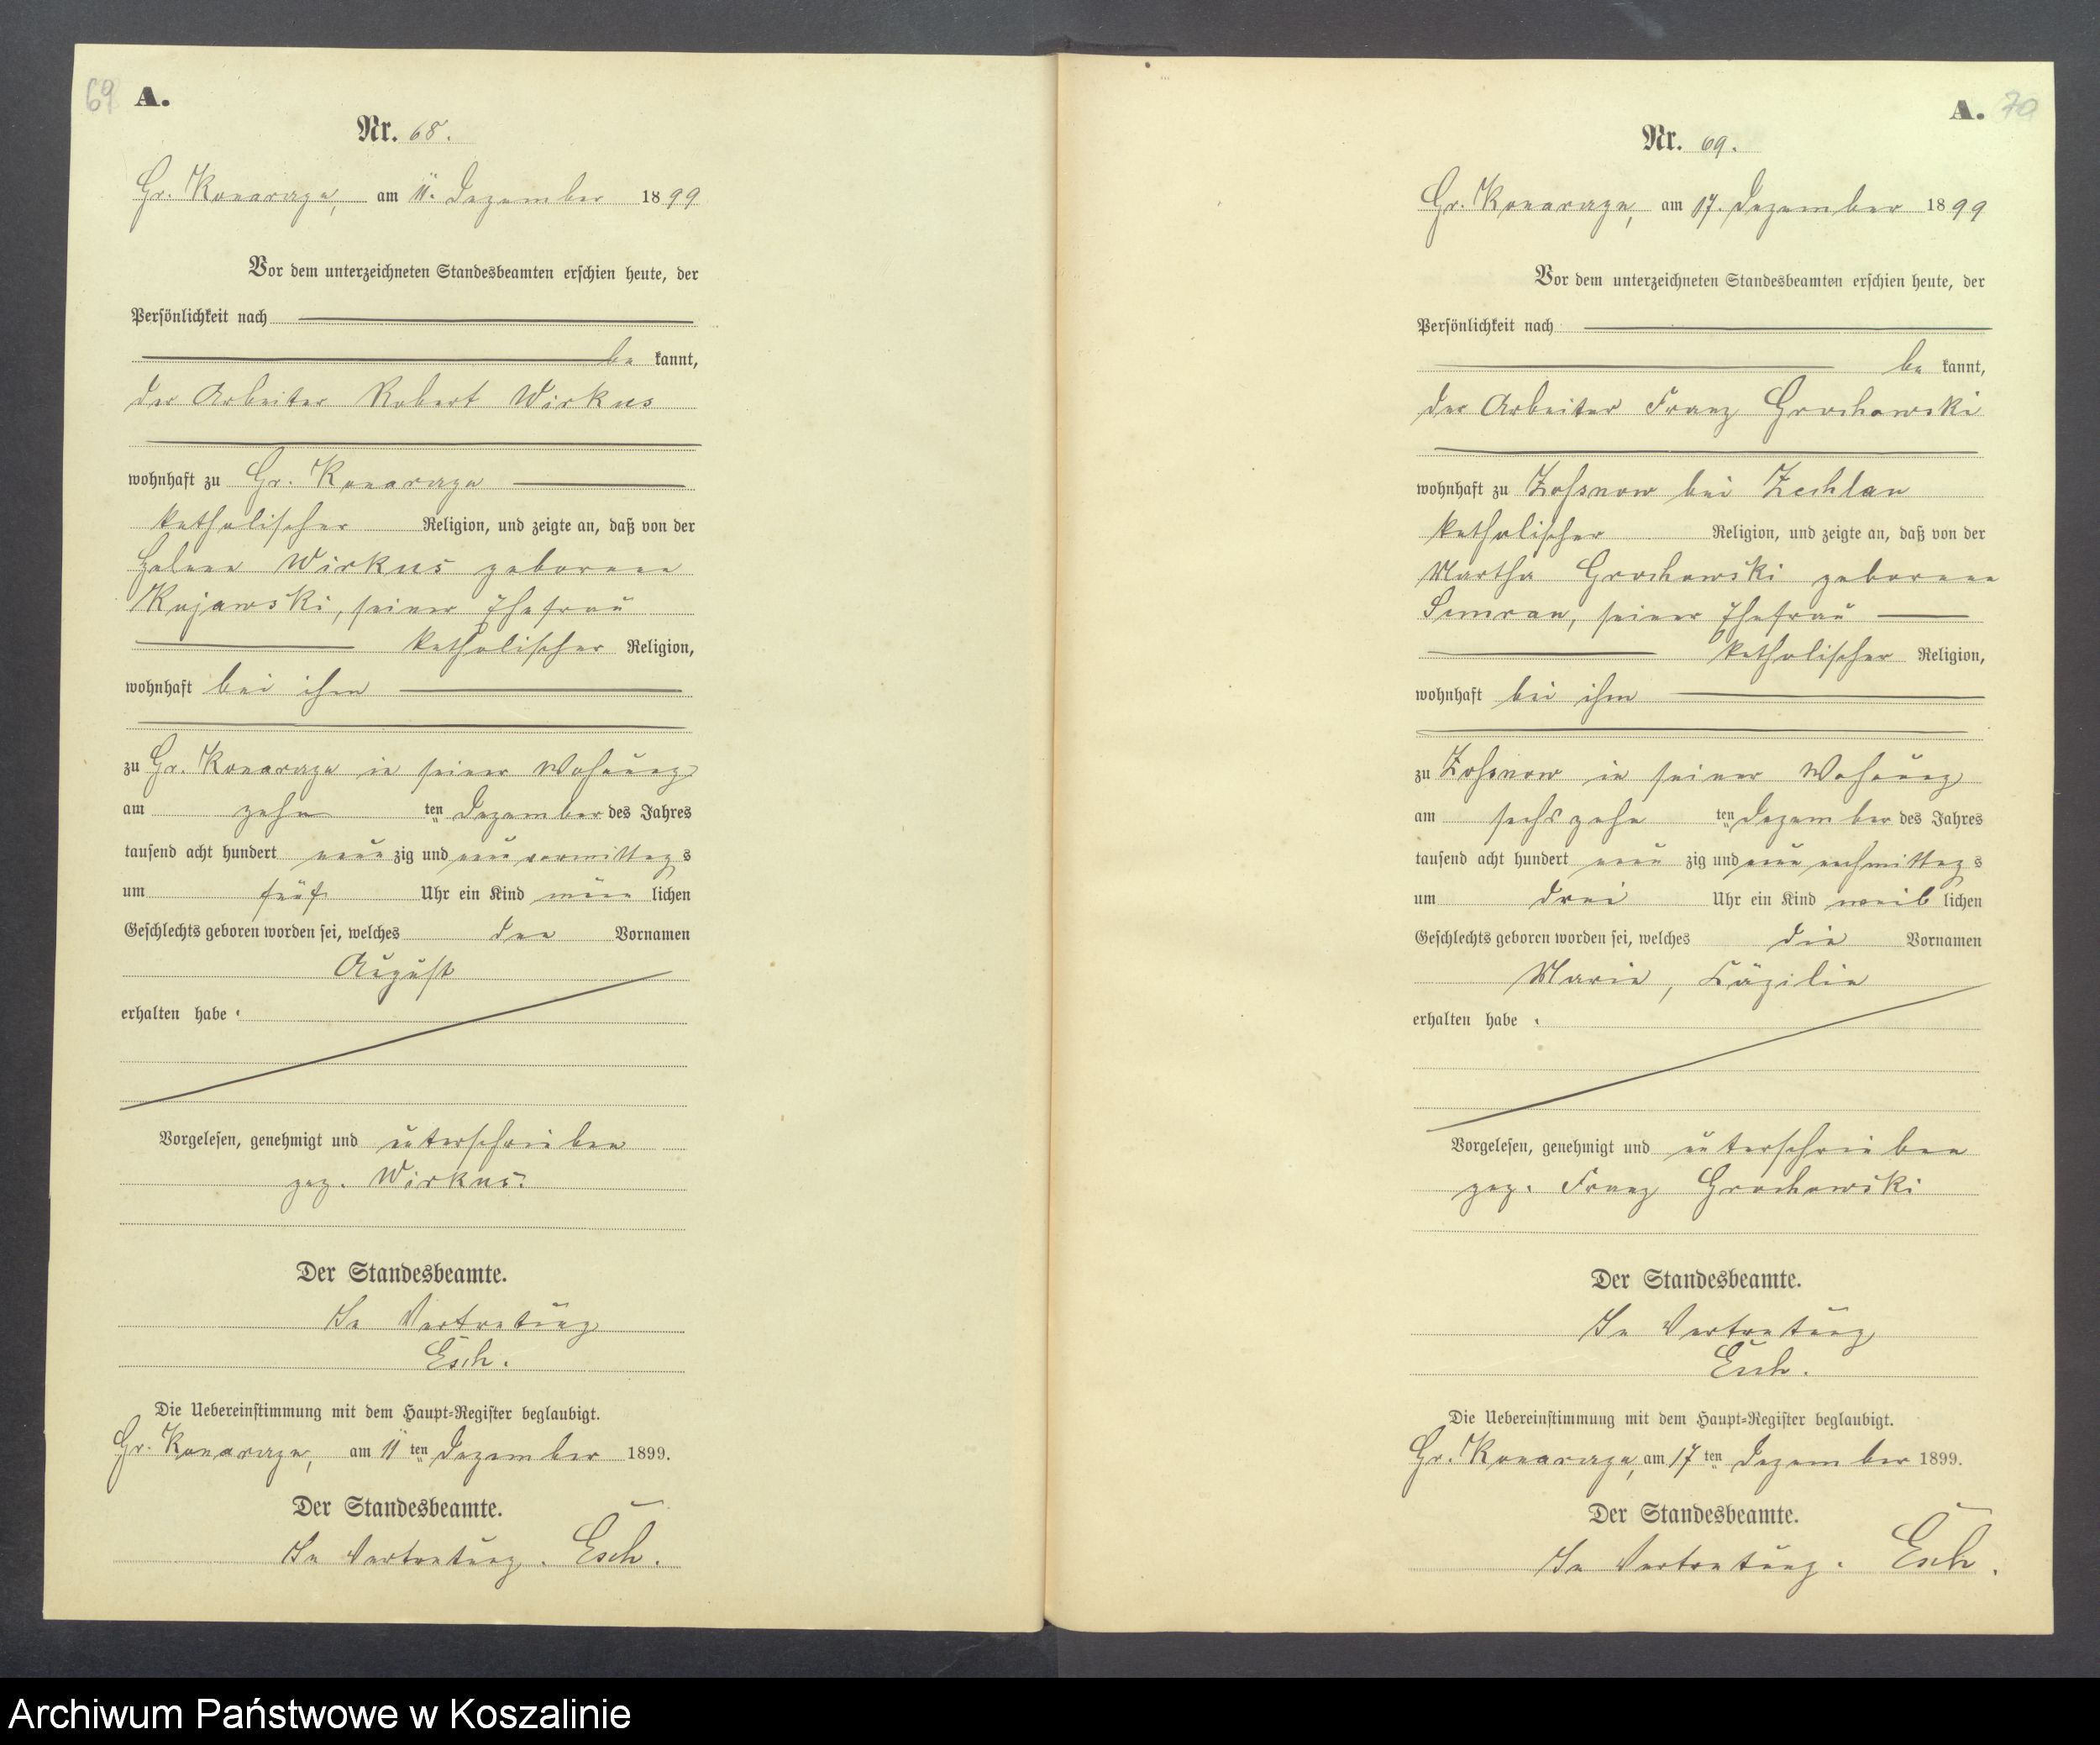 69 A.
Nr. 68.
Gr. Konarczyn, am 11. Dezember 1899
Vor dem unterzeichneten Standesbeamten erschien heute, der
Persönlichkeit nach
be kannt,
der Arbeiter Robert Wirkus
wohnhaft zu Gr. Konarczyn
katholischer Religion, und zeigte an, daß von der
Helene Wirkus geborene
Kujawski, seiner Ehefrau
katholischer Religion,
wohnhaft bei ihm
zu Gr. Konarczyn in seiner Wohnung
am zehn ten Dezember des Jahres
tausend acht hundert neun zig und neun vormittag s
um fünf Uhr ein Kind männ lichen
Geschlechts geboren worden sei, welches den Vornamen
August
erhalten habe.
Vorgelesen, genehmigt und unterschrieben
gez. Wirkus.
Der Standesbeamte.
In Vertretung
Esch.
Die Uebereinstimmung mit dem Haupt-Register beglaubigt.
Gr. Konarczyn, am 11 ten Dezember 1899.
Der Standesbeamte.
In Vertretung. Esch.
A. 70
Nr. 69.
Gr. Konarczyn, am 17. Dezember 1899
Vor dem unterzeichneten Standesbeamten erschien heute, der
Persönlichkeit nach
be kannt,
der Arbeiter Franz Grochowski
wohnhaft zu Zossnow bei Zechlau
katholischer Religion, und zeigte an, daß von der
Martha Grochowski geborene
seiner Ehefrau
katholischer Religion,
wohnhaft bei ihm
zu Zossnow in seiner Wohnung
am sechszehn ten Dezember des Jahres
tausend acht hundert neun zig und neun nachmittag s
um drei Uhr ein Kind weib lichen
Geschlechts geboren worden sei, welches die Vornamen
Marie, Cäzilie
erhalten habe.
Vorgelesen, genehmigt und unterschrieben
gez. Franz Grochowski
Der Standesbeamte.
In Vertretung
Esch.
Die Uebereinstimmung mit dem Haupt-Register beglaubigt.
Gr. Konarczyn, am 17 ten Dezember 1899.
Der Standesbeamte.
In Vertretung. Esch.
Archiwum Państwowe w Koszalinie